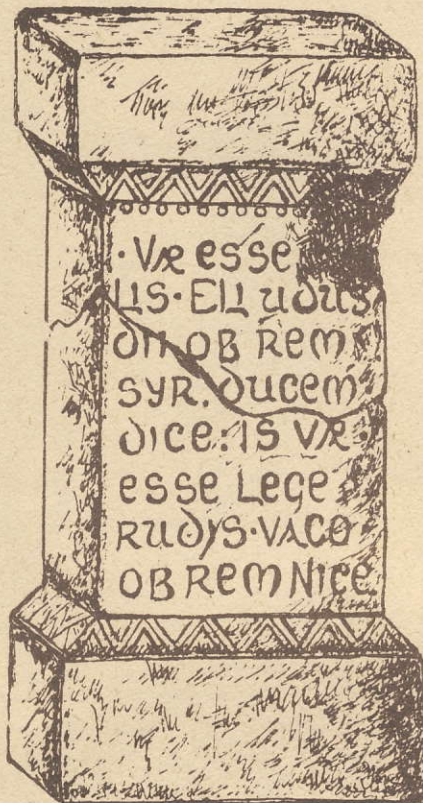 · Væ esse
LIS · ELI uduS
dII OB Rem
SYR. ducem
dice: IS Væ ·
esse Lege
RUdYS · VACO
OB Rem NICE